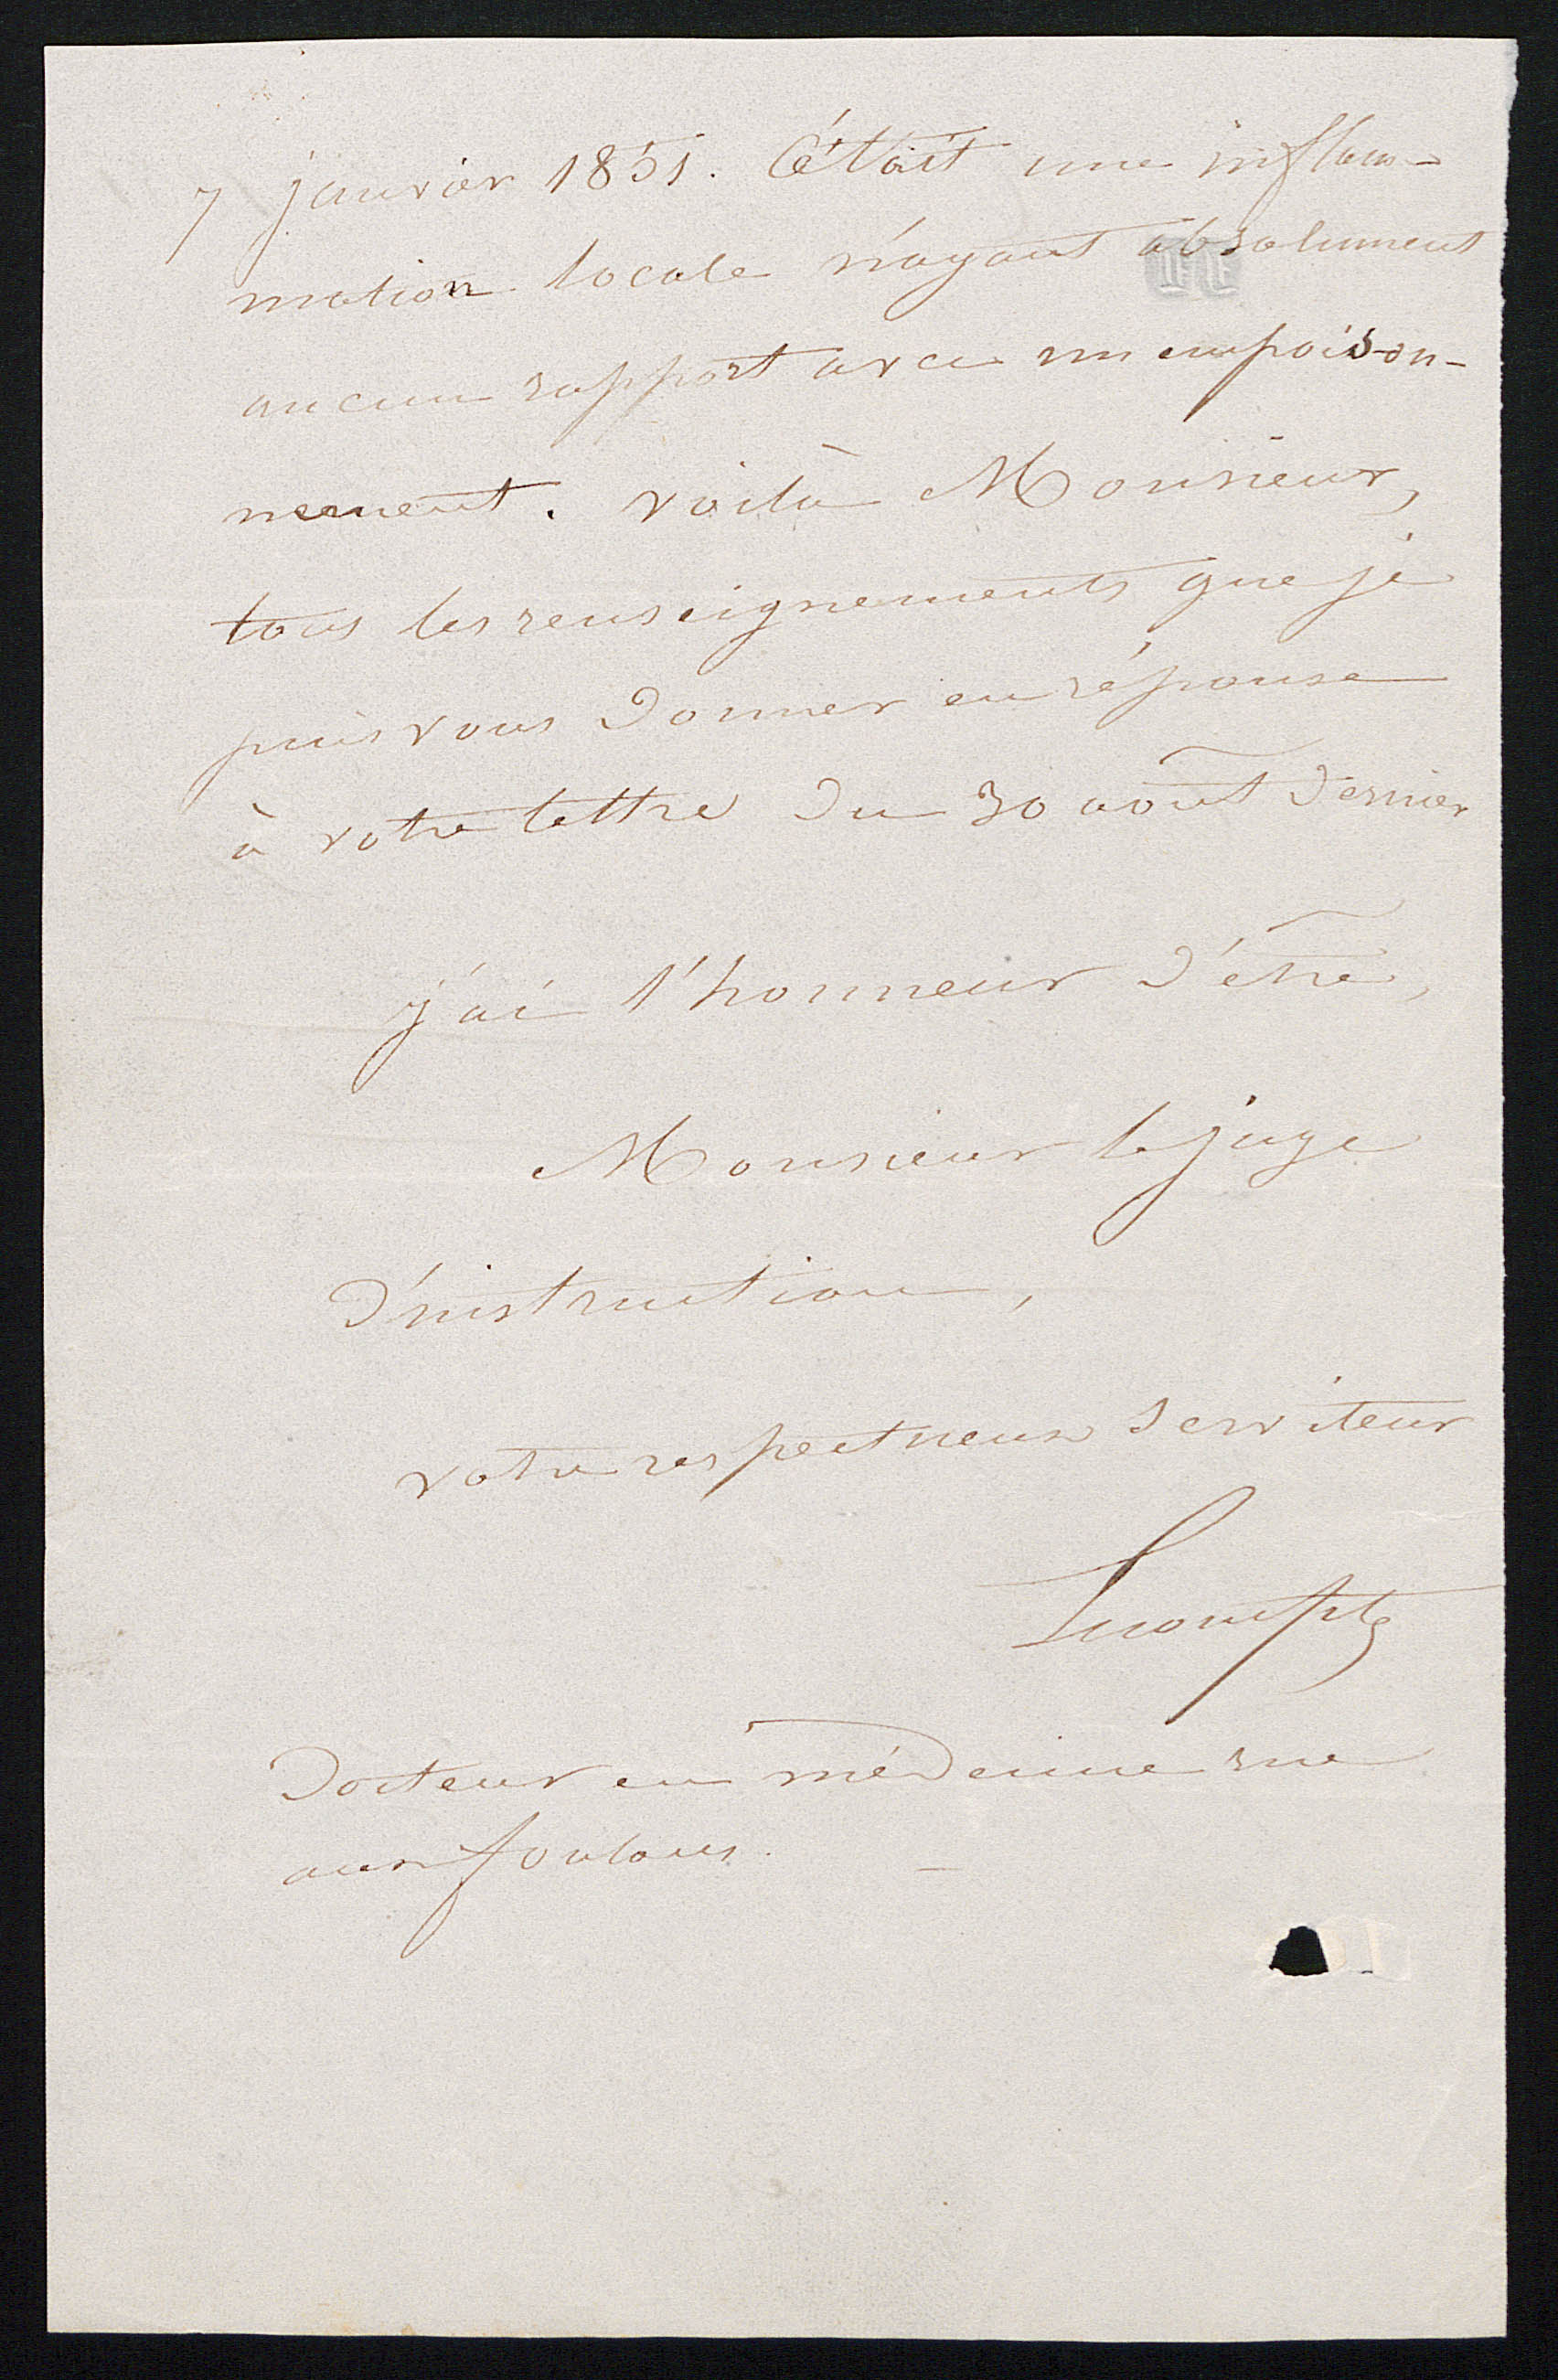 7 janvier 1851. C'était une inflam-
mation locale n'ayant absolument
aucun rapport avec un empoison-
nement. voilà Monsieur,
tous les renseignements que je
puis vous donner en réponse
à votre lettre du 30 août dernier
j'ai l'honneur d'être,
Monsieur le juge
d'instruction,
votre respectueux serviteur
Docteur en médecine rue
aux foulons.